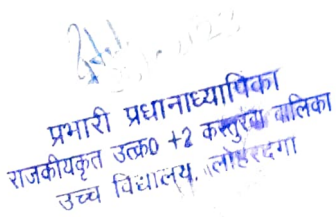 प्रभारी प्रधानाध्यापिका
राजकीयकृत उत्क्र0 +2 कस्तुरबा बालिका
उच्च विद्यालय, लोहरदगा